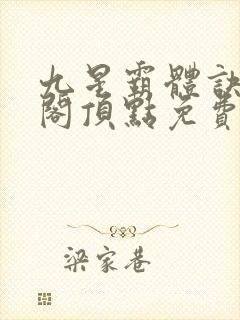 九星霸體訣
閣頂點免費
梁家巷